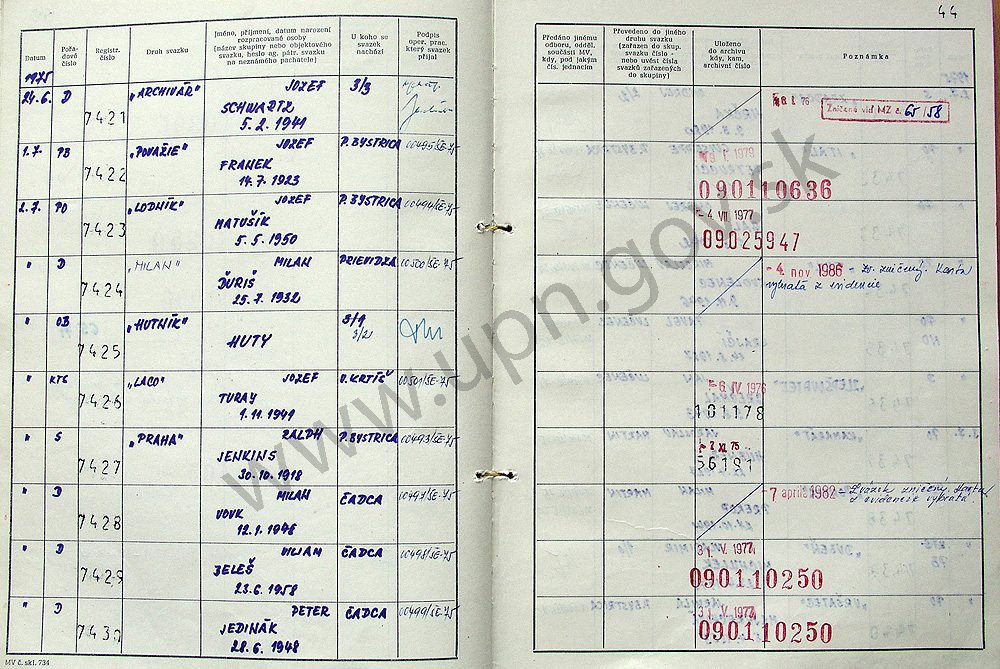 44
Datum
Pořadové číslo
Registr. číslo
Druh svazku
Jméno, příjmení, datum narození rozpracované osoby
(název skupiny nebo objektového svazku, heslo ag. pátr. svazku na neznámého pachatele)
U koho se svazek nachází
Podpis oper. prac. který svazek přijal
Předáno jinému odboru, odděl. součásti MV, kdy, pod jakým čís. jednacím
Převedeno do jiného druhu svazku (zařazen do skup. svazku číslo - nebo uvést čísla svazků zařazených do skupiny)
Uloženo do archivu kdy, kam, archivní číslo
Poznámka
1975
24.6. D 7421 "ARCHIVÁR" JOZEF 3/3
SCHWARTZ
5. 2. 1941
Zničené viď MZ č. 65/58
1.7. PB 7422 "POVAŽIE" JOZEF P. BYSTRICA 00495/ŠE-75
FRANEK
14. 7. 1923
I. 1979
090110636
2.7. PO 7423 "LODNÍK" JOZEF P. BYSTRICA 00494/ŠE-75
MATUŠÍK
5. 5. 1950
-4. VII 1977
09025947
" D 7424 "MILAN" MILAN PRIEVIDZA 00500/ŠE-75
ĎURIŠ
25. 7. 1932
-4. nov 1986 - zv. zničený. Karta
vybratá z evidencie
" OB 7425 "HUTNÍK" 3/1
3/21
HUTY
" KTS 7426 "LACO" JOZEF V. KRTÍŠ 00501/ŠE-75
TURAY
1. 11. 1941
-6. IV. 1976
101178
" S 7427 "PRAHA" RALPH P. BYSTRICA 00493/ŠE-75
JENKINS
30. 10. 1918
XI. 75
56181
" D 7428 MILAN ČADCA 00497/ŠE-75
VOVK
12. 1. 1946
-7. apríl 1982 - Zväzok zničený
z evidencie vybratá
" D 7429 VILIAM ČADCA 00498/ŠE-75
BELEŠ
23. 6. 1958
31. V. 1977
090110250
" D 7430 PETER ČADCA 00499/ŠE-75
JEDINÁK
28. 6. 1948
31. V. 1977
090110250
MV č. skl. 734
www.upn.gov.sk